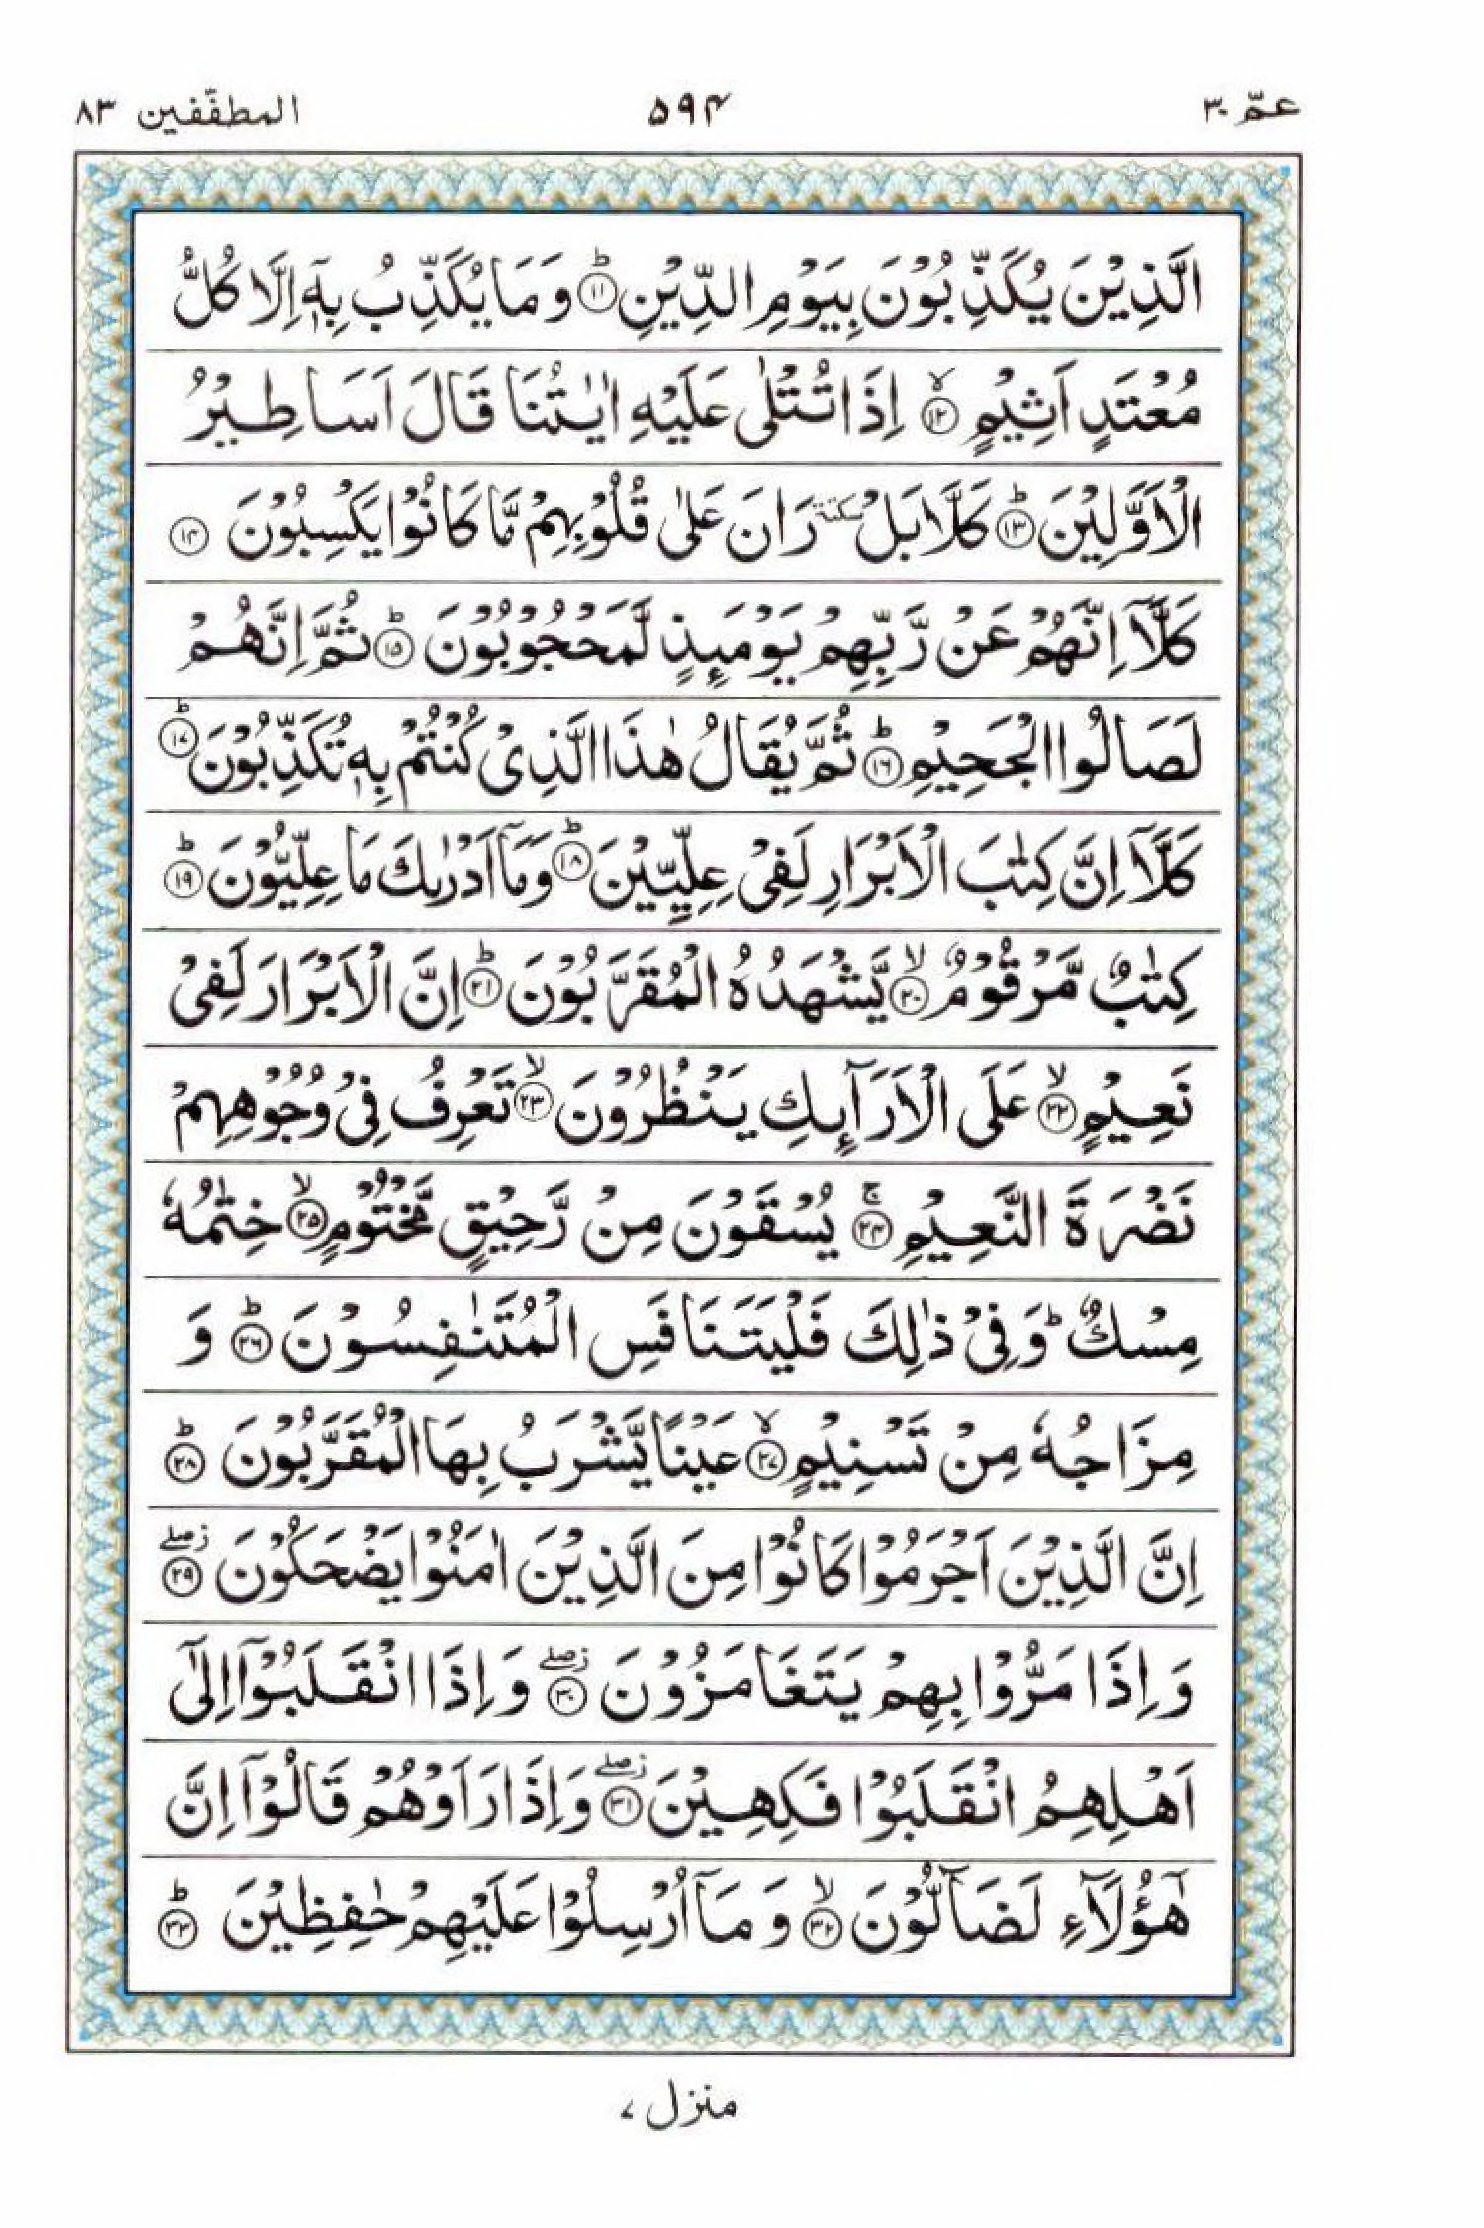 عمّ ۳۰ ۵۹۴ المطفّفين ۸۳
الَّذِيْنَ يُكَذِّبُوْنَ بِيَوْمِ الدِّيْنِ ؕ‏ ﴿۱۱﴾ وَمَا يُكَذِّبُ بِهٖۤ اِلَّا كُلُّ
مُعْتَدٍ اَثِيْمٍ ۙ‏ ﴿۱۲﴾ اِذَا تُتْلٰى عَلَيْهِ اٰيٰتُنَا قَالَ اَسَاطِيْرُ
الْاَوَّلِيْنَ ؕ‏ ﴿۱۳﴾ كَلَّا بَلْ سكتة رَانَ عَلٰى قُلُوْبِهِمْ مَّا كَانُوْا يَكْسِبُوْنَ ﴿۱۴﴾
كَلَّاۤ اِنَّهُمْ عَنْ رَّبِّهِمْ يَوْمَىِٕذٍ لَّمَحْجُوْبُوْنَ ؕ‏ ﴿۱۵﴾ ثُمَّ اِنَّهُمْ
لَصَالُوا الْجَحِيْمِ ؕ‏ ﴿۱۶﴾ ثُمَّ يُقَالُ هٰذَا الَّذِىْ كُنْتُمْ بِهٖ تُكَذِّبُوْنَ ؕ‏ ﴿۱۷﴾
كَلَّاۤ اِنَّ كِتٰبَ الْاَبْرَارِ لَفِىْ عِلِّيِّيْنَ ؕ‏ ﴿۱۸﴾ وَمَاۤ اَدْرٰىكَ مَا عِلِّيُّوْنَ ؕ‏ ﴿۱۹﴾
كِتٰبٌ مَّرْقُوْمٌ ۙ‏ ﴿۲۰﴾ يَّشْهَدُهُ الْمُقَرَّبُوْنَ ؕ‏ ﴿۲۱﴾ اِنَّ الْاَبْرَارَ لَفِىْ
نَعِيْمٍ ۙ‏ ﴿۲۲﴾ عَلَى الْاَرَآىِٕكِ يَنْظُرُوْنَ ۙ‏ ﴿۲۳﴾ تَعْرِفُ فِىْ وُجُوْهِهِمْ
نَضْرَةَ النَّعِيْمِ ۚ‏ ﴿۲۴﴾ يُسْقَوْنَ مِنْ رَّحِيْقٍ مَّخْتُوْمٍ ۙ‏ ﴿۲۵﴾ خِتٰمُهٗ
مِسْكٌ ؕ وَفِىْ ذٰلِكَ فَلْيَتَنَافَسِ الْمُتَنٰفِسُوْنَ ؕ‏ ﴿۲۶﴾ وَ
مِزَاجُهٗ مِنْ تَسْنِيْمٍ ۙ‏ ﴿۲۷﴾ عَيْنًا يَّشْرَبُ بِهَا الْمُقَرَّبُوْنَ ؕ‏ ﴿۲۸﴾
اِنَّ الَّذِيْنَ اَجْرَمُوْا كَانُوْا مِنَ الَّذِيْنَ اٰمَنُوْا يَضْحَكُوْنَ ز صلے ﴿۲۹﴾
وَاِذَا مَرُّوْا بِهِمْ يَتَغَامَزُوْنَ ز صلے ﴿۳۰﴾ وَاِذَا انْقَلَبُوْۤا اِلٰٓى
اَهْلِهِمُ انْقَلَبُوْا فَكِهِيْنَ ز صلے ﴿۳۱﴾ وَاِذَا رَاَوْهُمْ قَالُوْۤا اِنَّ
هٰٓؤُلَآءِ لَضَآلُّوْنَ ۙ‏ ﴿۳۲﴾ وَمَاۤ اُرْسِلُوْا عَلَيْهِمْ حٰفِظِيْنَ ؕ‏ ﴿۳۳﴾
منزل ۷